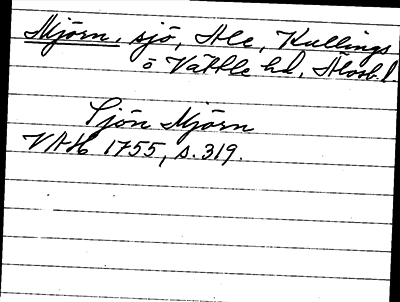 Mjörn, sjö, Ale, Kullings
o Vättle hd, Älvsb.l
Sjön Mjörn
VAH 1755, s. 319.